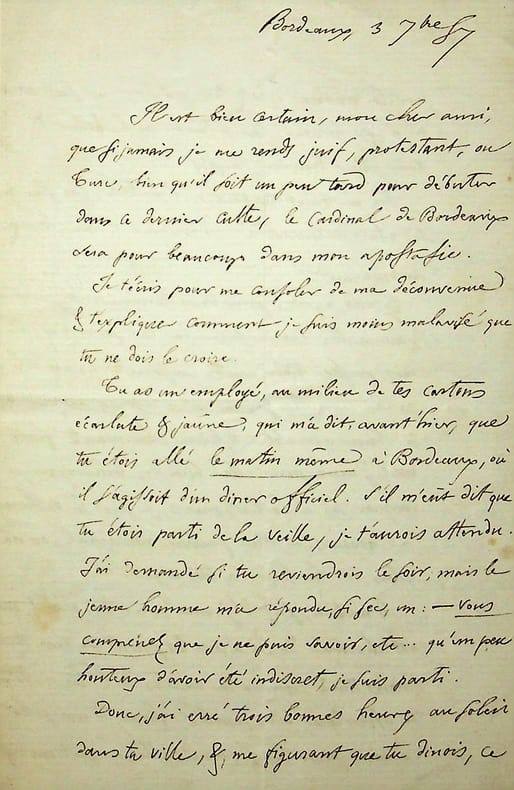 Bordeaux, 3 7bre 57
Il est bien certain, mon cher ami,
que si jamais je me rends juif, protestant, ou
Turc, bien qu'il soit un peu tard pour débuter
dans ce dernier culte, le Cardinal de Bordeaux
sera pour beaucoup dans mon apostasie.
Je t'écris pour me consoler de ma déconvenue
& t'expliquer comment je suis moins malavisé que
tu ne dois le croire.
Tu as un employé, au milieu de tes cartons
écarlate & jaune, qui m'a dit, avant hier, que
tu étois allé le matin même à Bordeaux, où
il s'agissoit d'un diner officiel. S'il m'eût dit que
tu étois parti de la veille, je t'aurois attendu.
J'ai demandé si tu reviendrois le soir, mais le
jeune homme m'a répondu, si sec, un : — Vous
comprenez que je ne puis savoir, etc... qu'un peu
honteux d'avoir été indiscret, je suis parti.
Donc, j'ai erré trois bonnes heures au soleil
dans ta ville, &, me figurant que tu dinois, ce